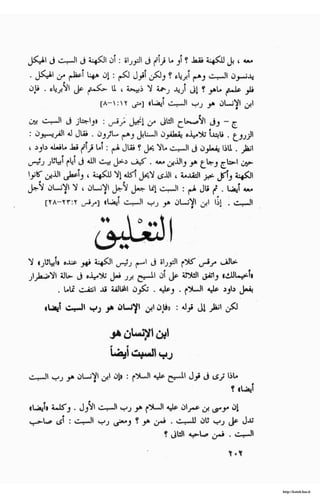 معه ، بل للكهنة فقط ؟ أو ما قرأتم في التوراة : أن الكهنة في السبت في الهيكل
يدنسون السبت وهم أبرياء ؟ ولكن أقول لكم : إن ههنا أعظم من الهيكل .
فلو علمتم ما هو ؟ إني أريد رحمة لا ذبيحة ، لما حكمتم على الأبرياء . فإن
ابن الإنسان هو رب السبت أيضا» [متى ١٢: ١-٨]
ج – وفي الأصحاح الثاني من إنجيل مرقس : «واجتاز في السبت بين
الزروع . فابتدأ تلاميذه يقطفون السنابل وهم سائرون . فقال له الفريسيون :
انظر . لماذا يفعلون في السبت ما لا يحل ؟ فقال لهم : أما قرأتم قط ما فعله داود ،
حين احتاج وجاع هو والذين معه . كيف دخل بيت الله في أيام أبياثار رئيس
الكهنة وأكل خبز التقدمة ، الذي لا يحل أكله إلا للكهنة ، وأعطى الذين كانوا
معه أيضا . ثم قال لهم : السبت إنما جعل لأجل الإنسان ، لا الإنسان لأجل
السبت . إذا ابن الإنسان هو رب السبت أيضا» [مرقس ٢: ٢٣-٢٨]
التعليق
خالف مرقس كلام التوراة في اسم رئيس الكهنة فهو عنده «أبياثار» لا
«أخيمالك» واتفق الثلاثة على أن المسيح برر فعل تلاميذه في حالة الاضطرار
بفعل داود عليه السلام . وعليه . تكون المخالفة قد انتفت تماما .
لكن انظر إلى قوله : «فإن ابن الإنسان هو رب السبت أيضا»
ابن الإنسان هو
رب السبت أيضا
ماذا يرى في قول المسيح عليه السلام : «إن ابن الإنسان هو رب السبت
أيضا» ؟
إن موسى بن عمران عليه السلام هو رب السبت الأول . وكلمة «أيضا»
تدل على رب ثان للسبت . فمن هو ؟ ومعنى رب السبت : أي صاحب
السبت . فمن هو صاحب السبت الثاني ؟
٢٠٢